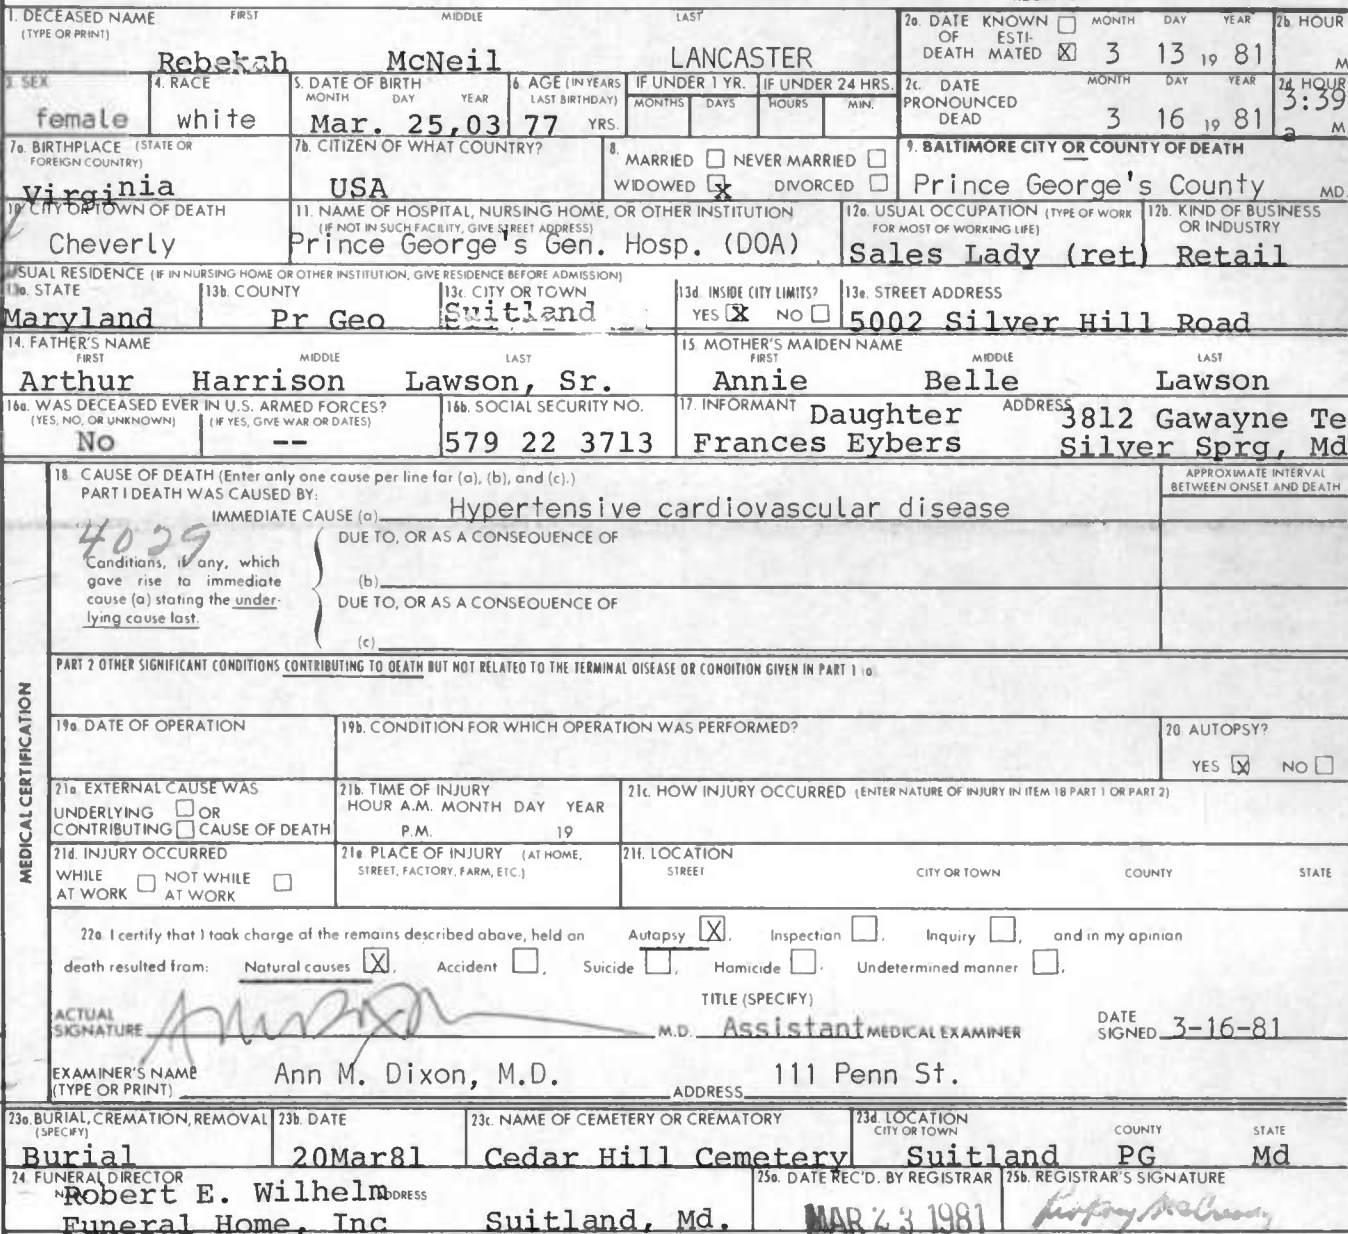 1. DECEASED NAME FIRST MIDDLE LAST
(TYPE OR PRINT)
Rebekah McNeil LANCASTER
2a. DATE KNOWN MONTH DAY YEAR
OF ESTI-
DEATH MATED X 3 13 19 81
2b. HOUR
M
3. SEX
female
4. RACE
white
5. DATE OF BIRTH
MONTH DAY YEAR
Mar. 25,03
6. AGE (IN YEARS
LAST BIRTHDAY)
77 YRS.
IF UNDER 1 YR.
MONTHS DAYS
IF UNDER 24 HRS.
HOURS MIN.
2c. DATE MONTH DAY YEAR
PRONOUNCED
DEAD 3 16 19 81
2d. HOUR
3:39
a M
7a. BIRTHPLACE (STATE OR
FOREIGN COUNTRY)
Virginia
7b. CITIZEN OF WHAT COUNTRY?
USA
8. MARRIED NEVER MARRIED
WIDOWED X DIVORCED
9. BALTIMORE CITY OR COUNTY OF DEATH
Prince George's County MD.
10. CITY OR TOWN OF DEATH
Cheverly
11. NAME OF HOSPITAL, NURSING HOME, OR OTHER INSTITUTION
(IF NOT IN SUCH FACILITY, GIVE STREET ADDRESS)
Prince George's Gen. Hosp. (DOA)
12a. USUAL OCCUPATION (TYPE OF WORK
FOR MOST OF WORKING LIFE)
Sales Lady (ret)
12b. KIND OF BUSINESS
OR INDUSTRY
Retail
USUAL RESIDENCE (IF IN NURSING HOME OR OTHER INSTITUTION, GIVE RESIDENCE BEFORE ADMISSION)
13a. STATE
Maryland
13b. COUNTY
Pr Geo
13c. CITY OR TOWN
Suitland
13d. INSIDE CITY LIMITS?
YES X NO
13e. STREET ADDRESS
5002 Silver Hill Road
14. FATHER'S NAME
FIRST MIDDLE LAST
Arthur Harrison Lawson, Sr.
15. MOTHER'S MAIDEN NAME
FIRST MIDDLE LAST
Annie Belle Lawson
16a. WAS DECEASED EVER IN U.S. ARMED FORCES?
(YES, NO, OR UNKNOWN) (IF YES, GIVE WAR OR DATES)
No --
16b. SOCIAL SECURITY NO.
579 22 3713
17. INFORMANT Daughter ADDRESS 3812 Gawayne Te
Frances Eybers Silver Sprg, Md
MEDICAL CERTIFICATION
18. CAUSE OF DEATH (Enter only one cause per line for (a), (b), and (c).)
PART I DEATH WAS CAUSED BY:
APPROXIMATE INTERVAL
BETWEEN ONSET AND DEATH
IMMEDIATE CAUSE (a) Hypertensive cardiovascular disease
4029
DUE TO, OR AS A CONSEQUENCE OF
Conditions, if any, which
gave rise to immediate
cause (a) stating the under-
lying cause last.
(b)
DUE TO, OR AS A CONSEQUENCE OF
(c)
PART 2 OTHER SIGNIFICANT CONDITIONS CONTRIBUTING TO DEATH BUT NOT RELATED TO THE TERMINAL DISEASE OR CONDITION GIVEN IN PART 1 (a)
19a. DATE OF OPERATION
19b. CONDITION FOR WHICH OPERATION WAS PERFORMED?
20 AUTOPSY?
YES X NO
21a. EXTERNAL CAUSE WAS
UNDERLYING OR
CONTRIBUTING CAUSE OF DEATH
21b. TIME OF INJURY
HOUR A.M. MONTH DAY YEAR
P.M. 19
21c. HOW INJURY OCCURRED (ENTER NATURE OF INJURY IN ITEM 18 PART 1 OR PART 2)
21d. INJURY OCCURRED
WHILE NOT WHILE
AT WORK AT WORK
21e. PLACE OF INJURY (AT HOME,
STREET, FACTORY, FARM, ETC.)
21f. LOCATION
STREET CITY OR TOWN COUNTY STATE
22a. I certify that I took charge of the remains described above, held an Autopsy X, Inspection, Inquiry, and in my opinion
death resulted from: Natural causes X, Accident, Suicide, Homicide, Undetermined manner,
TITLE (SPECIFY)
ACTUAL
SIGNATURE Ann M. Dixon M.D. Assistant MEDICAL EXAMINER
DATE
SIGNED 3-16-81
EXAMINER'S NAME
(TYPE OR PRINT) Ann M. Dixon, M.D. ADDRESS 111 Penn St.
23a. BURIAL, CREMATION, REMOVAL
(SPECIFY)
Burial
23b. DATE
20Mar81
23c. NAME OF CEMETERY OR CREMATORY
Cedar Hill Cemetery
23d. LOCATION
CITY OR TOWN COUNTY STATE
Suitland PG Md
24. FUNERAL DIRECTOR
Robert E. Wilhelm ADDRESS
Funeral Home, Inc Suitland, Md.
25a. DATE REC'D. BY REGISTRAR
MAR 23 1981
25b. REGISTRAR'S SIGNATURE